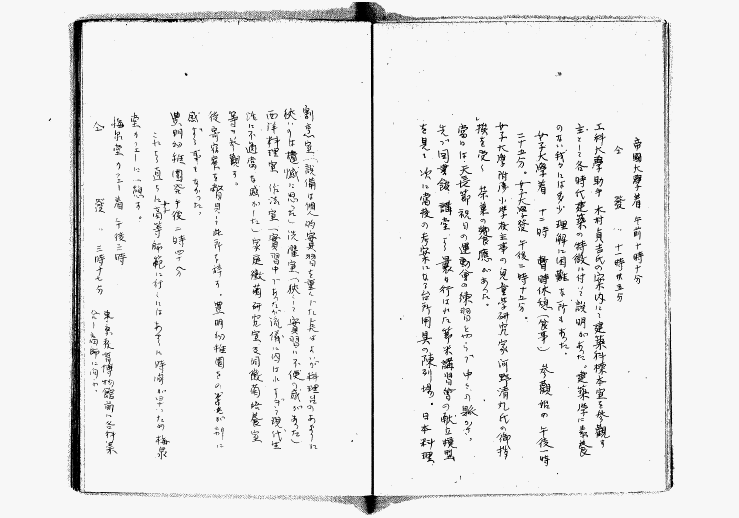 帝國大學着 午前十時十分
仝 發 〃 十一時廿五分
工科大學助手 木村貞吉氏の案内にて建築科標本室を参觀す
主として各時代建築の特徴に付て説明があった。建築學に素養
のない我々には多少理解に困難な所もあった。
女子大學着 十二時 暫時休憩(食事) 参觀始め 午後一時
二十五分。女子大學發 午後二時十五分。
女子大學附属小學校主事の兒童學研究家河野清丸氏の御挨
拶を受く 茶菓の饗應があった。
當日は天長節祝日の運動會の練習とやらで中々の賑ひ。
先づ同業館 講堂 に最近行はれた節米講習會の献立模型
を見る 次に當校の考案になる台所用具の陳列場。日本料理
割烹室(設備は個人的實習を重んじた点はよいが料理台のあまりに
狭いのは遺憾に思った)洗濯室(狭くして實習に不便の感があった)
西洋料理室 作法室(實習中であったが流儀に内は小さすぎて現代生
活に不適當な感がした)家庭黴菌研究室及同黴菌培養室
等を参觀す。
後寄宿舎を瞥見して此所を辞す。豊明幼稚園をの
感ずる事も多かった。
豊明幼稚園發午後二時四十分
これより直ちに高等師範に行くにはあまりに時間が早いため梅泉
堂カフェーに一憩す。
梅泉堂カフェー着 午後三時
仝 發 〃 三時十七分 東京教育博物館前に各科集
合し高師に向ふ。